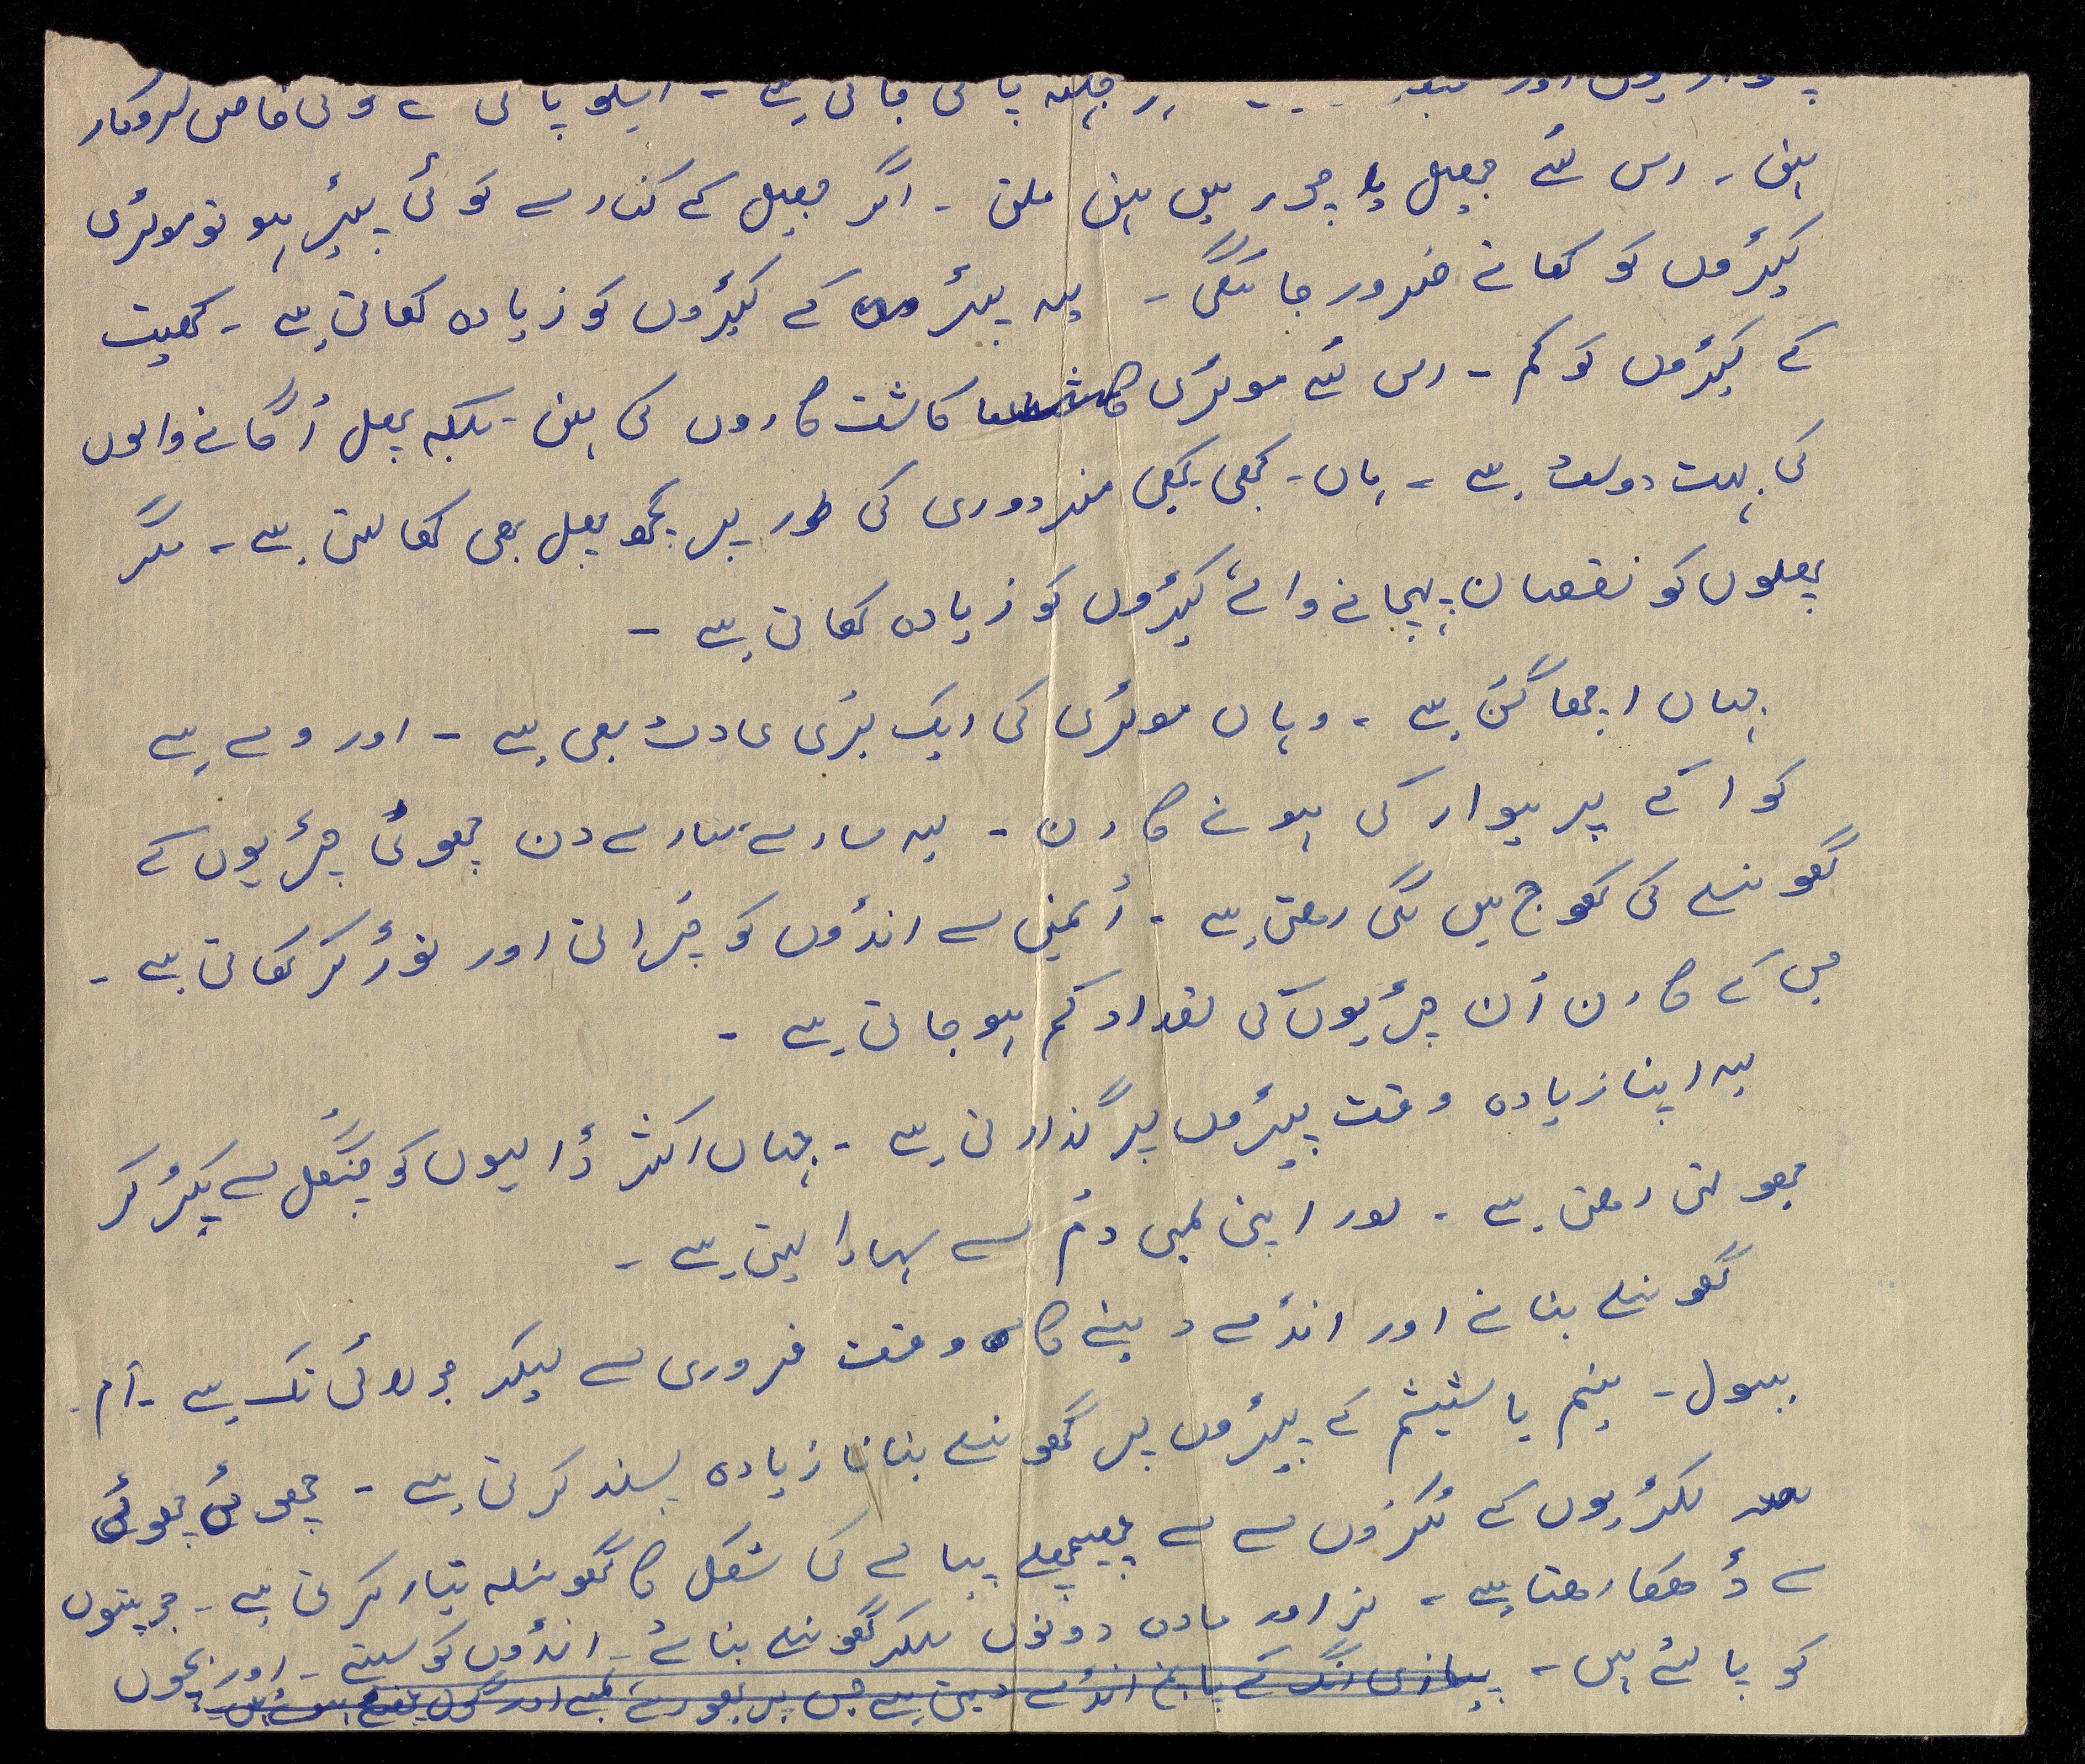 ہر جگہ پائی جاتی ہے - اسکو پانی سے کوئی خاص سروکار
نہیں - اس لئے جھیل یا جوہڑ میں نہیں ملتی - اگر جھیل کے کنارے کوئی پیڑ ہو تو موٹری
کیڑوں کو کھانے ضرور جائیگی - یہ پیڑ کے کیڑوں کو زیادہ کھاتی ہے - کھیت
کے کیڑوں کو کم - اس لئے موٹری کاشت کاروں کی نہیں - بلکہ پھل اُگانے والوں
کی بہت دوست ہے - ہاں - کبھی کبھی مزدوری کی طور پر کچھ پھل بھی کھا لیتی ہے - مگر
پھلوں کو نقصان پہچانے والے کیڑوں کو زیادہ کھاتی ہے -
جہاں اچھا گن ہے - وہاں موٹری کی ایک بڑی عادت بھی ہے - اور وہ ہے
کوا کے پریوار کی ہونے کارن - یہ سارے سارے دن چھوٹی چڑیوں کے
گھونسلے کی کھوج میں لگی رہتی ہے - اُنمیں سے انڈوں کو چُراتی اور توڑ کر کھاتی ہے -
جس کے کارن اُن چڑیوں کی تعداد کم ہو جاتی ہے -
یہ اپنا زیادہ وقت پیڑوں پر گذارتی ہے - جہاں اکثر ڈالیوں کو چنگل سے پکڑ کر
جھولتی رہتی ہے - اور اپنی لمبی دُم سے سہارا لیتی ہے -
گھونسلے بنانے اور انڈے دینے کا وقت فروری سے لیکر جولائی تک ہے - آم -
ببول - نیم یا شیشم کے پیڑوں پر گھونسلے بنانا زیادہ پسند کرتی ہے - چھوٹی چھوٹی
لکڑیوں کے ٹکڑوں سے چھچھلے پیالے کی شکل کا گھونسلہ تیار کرتی ہے - جو پتوں
سے ڈھکا رہتا ہے - نر اور مادہ دونوں ملکر گھونسلے بناتے - انڈوں کو سیتے - اور بچوں
کو پالتے ہیں - پیازی رنگ کے پانچ انڈے دیتی ہے جس پر بھورے لمبے اور گول